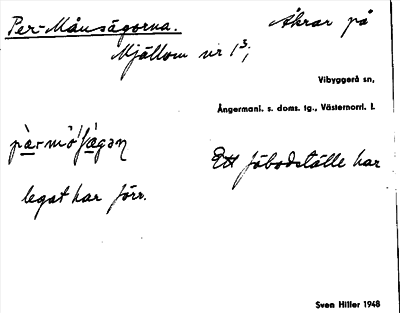 Per-Månsägorna. Åkrar på
Mjällom nr 1³;
Vibyggerå sn,
Ångermanl. s. doms. tg., Västernorrl. l.
Ett fäbodställe har
legat här förr.
Sven Hiller 1948